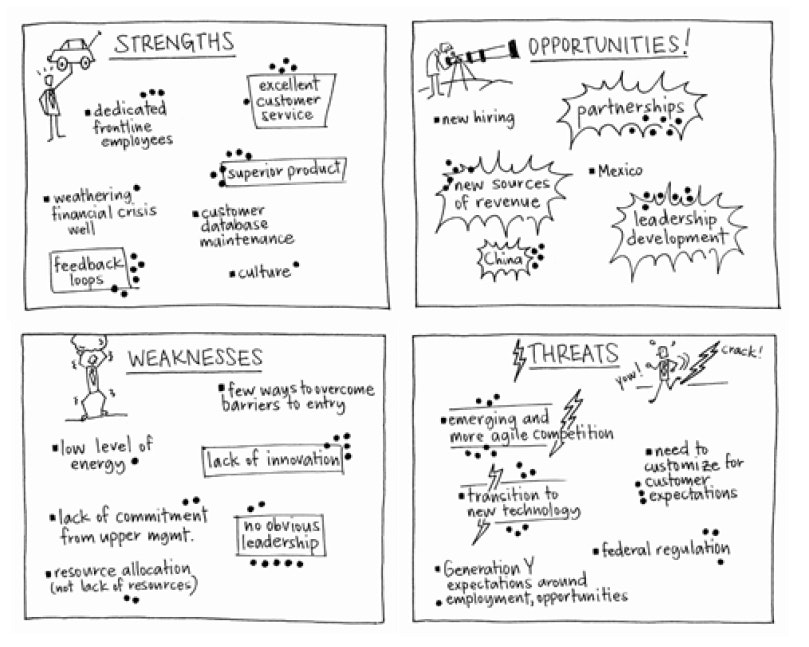 STRENGTHS
dedicated
frontline
employees
excellent
customer
service
superior product
weathering
financial crisis
well
customer
database
maintenance
feedback
loops
culture
OPPORTUNITIES!
new hiring
partnerships
new sources
of revenue
Mexico
leadership
development
China
WEAKNESSES
few ways to overcome
barriers to entry
low level of
energy
lack of innovation
lack of commitment
from upper mgmt.
no obvious
leadership
resource allocation
(not lack of resources)
THREATS
yow!
crack!
emerging and
more agile competition
need to
customize for
customer
expectations
trancition to
new technology
federal regulation
Generation Y
expectations around
employment, opportunities